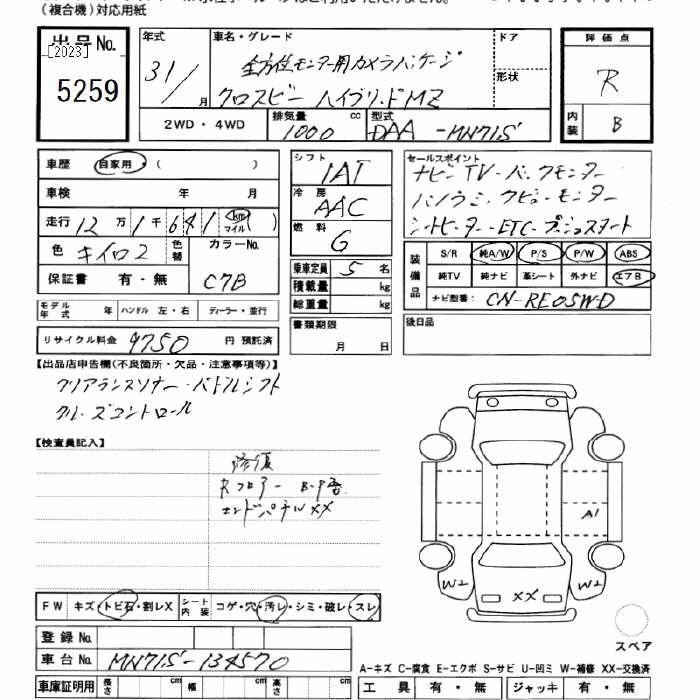 (複合機)対応用紙
出品No.
[2023]
5259
年式
31/
月
車名・グレード
全方位モニター用カメラパッケージ
クロスビー ハイブリッドMZ
ドア
形状
2WD・4WD
排気量
1000
cc
型式
DAA-MN71S
評価点
R
内装
B
車歴
自家用・( )
車検 年 月
走行 12万1千641 km マイル ( )
色 キイロ2
色替
カラーNo.
C7B
保証書 有・無
シフト
IAT
冷房
AAC
燃料
G
乗車定員 5 名
積載量 kg
総重量 kg
書類期限
月 日
セールスポイント
ナビ-TV-バックモニター
シートヒーター-ETC-プッシュスタート
装備品
S/R 純A/W P/S P/W ABS
純TV 純ナビ 革シート 外ナビ エアB
ナビ型番: CN-RE05WD
後日品
モデル年式 年 ハンドル 左・右 ディーラー・並行
リサイクル料金 9750 円 預託済
【出品店申告欄(不良箇所・欠品・注意事項等)】
クリアランスソナー・パドルシフト
クルーズコントロール
【検査員記入】
修復
Rフロアー
エンドパネルXX
A1
W2
W2
XX
スペア
FW キズ・トビ石・割レX
シート内装 コゲ・穴・汚レ・シミ・破レ・スレ
登録No.
車台No. MN71S-134570
車庫証明用 長さ cm 幅 cm 高さ cm
A-キズ C-腐食 E-エクボ S-サビ U-凹ミ W-補修 XX-交換済
工具 有・無 ジャッキ 有・無